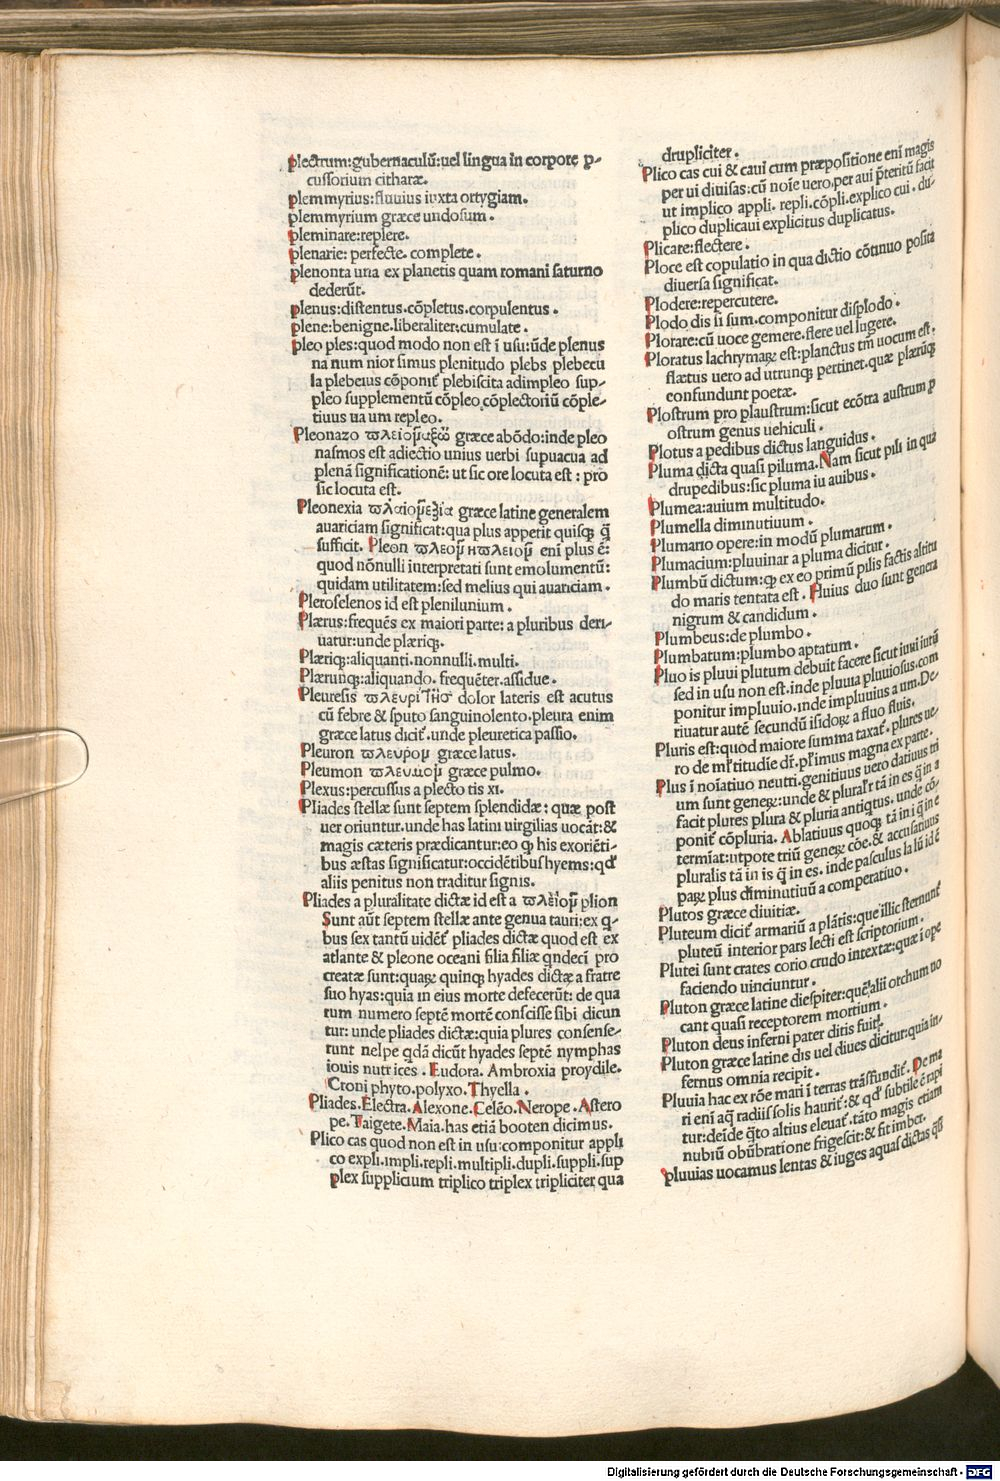 plectrum:gubernaculū:uel lingua in corpore ꝑ-
cussorium citharæ.
plemmyrius:fluuius iuxta ortygiam.
plemmyrium græce undosum.
pleminare:replere.
plenarie: perfecte. complete.
plenonta una ex planetis quam romani saturno
dederūt.
plenus:distentus.cōpletus.corpulentus.
plene:benigne.liberaliter:cumulate.
pleo ples:quod modo non est ī usu:ūde plenus
na num nior simus plenitudo plebs plebecu
la plebeius cōponit᷑ plebiscita adimpleo sup-
pleo supplementū cōpleo cōplectoriū cōple-
tiuus ua um repleo.
Pleonazo græce abōdo:inde pleo
nasmos est adiectio unius uerbi supuacua ad
plenā significationē: ut sic ore locuta est : pro
sic locuta est.
Pleonexia græce latine generalem
auariciam significat:qua plus appetit quisqꝫ q̄
sufficit. Pleon enī plus ē:
quod nōnulli interpretati sunt emolumentū:
quidam utilitatem:sed melius qui auariciam.
Pleroselenos id est plenilunium.
Plærus:frequēs ex maiori parte: a pluribus deri-
uatur:unde plæriqꝫ.
Plæriqꝫ:aliquanti.nonnulli.multi.
Plærunqꝫ:aliquando. frequēter.assidue.
Pleuresis dolor lateris est acutus
cū febre & sputo sanguinolento.pleura enim
græce latus dicit᷑.unde pleuretica passio.
Pleuron græce latus.
Pleumon græce pulmo.
Plexus:percussus a plecto tis xi.
Pliades stellæ sunt septem splendidæ: quæ post
uer oriuntur.unde has latini uirgilias uocāt:&
magis cæteris prædicantur:eo ꝙ his exoriēti-
bus æstas significatur:occidētibus hyems:qd᷑
aliis penitus non traditur signis.
Pliades a pluralitate dictæ id est a πλεῖον plion
Sunt aūt septem stellæ ante genua tauri:ex q-
bus sex tantū uidēt᷑ pliades dictæ quod est ex
atlante & pleone oceani filia filiæ qndecī pro
creatæ sunt:quaꝝ quinqꝫ hyades dictæ a fratre
suo hyas:quia in eius morte defecerūt: de qua
rum numero septē mortē conscisse sibi dicun
tur: unde pliades dictæ:quia plures consense-
runt nesse qdā dicūt hyades septē nymphas
iouis nutrices. Eudora. Ambroxia proydile.
Croni phyto.polyxo.Thyella.
Pliades.Electra.Alexone.Celēo.Nerope.Astero
pe.Taigete.Maia.has etiā booten dicimus.
Plico cas quod non est in usu:componitur appli
co expli.impli.repli.multipli.dupli.suppli.sup
plex supplicium triplico triplex tripliciter qua
drupliciter.
Plico cas cui & caui cum præpositione enī magis
per ui diuisas:cū noīe uero,per aui p̄teritū facit
ut implico appli. repli.cōpli.explico cui. du-
plico duplicaui explicitus duplicatus.
Plicare:flectere.
Ploce est copulatio in qua dictio cōtinuo posita
diuersa significat.
Plodere:repercutere.
Plodo dis si sum.componitur displodo.
Plorare:cū uoce gemere.flere uel lugere.
Ploratus lachrymaꝝ est:planctus tm̄ uocum est.
flætus uero ad utrunqꝫ pertinet.quæ plærūqꝫ
confundunt poetæ.
Plostrum pro plaustrum:sicut ecōtra austrum ꝓ
ostrum genus uehiculi.
Plotus a pedibus dictus languidus.
Pluma dicta quasi piluma.Nam sicut pili in qua
drupedibus:sic pluma iu auibus.
Plumea:auium multitudo.
Plumella diminutiuum.
Plumario opere:in modū plumarum.
Plumacium:pluuinar a pluma dicitur.
Plumbū dictum:ꝙ ex eo primū pilis factis altitu
do maris tentata est. Huius duo sunt genera
nigrum & candidum.
Plumbeus:de plumbo.
Plumbatum:plumbo aptatum.
Pluo is pluui plutum debuit facere sicut iuui iutū
sed in usu non est.inde pluuia pluuiosus.com
ponitur impluuio.inde impluuius a um.De-
riuatur autē secundū isidoꝝ a fluo fluis.
Pluris est:quod maiore summa taxat᷑. plures ue-
ro de ml᷑titudie dr̄.pl᷑imus magna ex parte.
Plus ī noīatiuo neutri.genitiuus uero datiuus tri
um sunt geneꝝ:unde & plural᷑r tā in es q̄ in a
facit plures plura & pluria antiqtus. unde cō-
ponit᷑ cōpluria. Ablatiuus quoqꝫ tā in i q̄ in e
termīat:utpote triū geneꝝ cōe.& accusatiuus
pluralis tā in is q̄ in es. inde pasculus la lū id ē
paꝝ plus diminutiuū a comperatiuo.
Plutos græce diuitiæ.
Pluteum dicit᷑ armariū a plātis:que illic sternunt᷑
pluteū interior pars lecti est scriptorium.
Plutei sunt crates corio crudo intextæ:quæ ī ope
faciendo uinciuntur.
Pluton græce latine diespiter:quē alii orchum uo
cant quasi receptorem mortium.
Pluton deus inferni pater ditis fuit.
Pluton græce latine dis uel diues dicitur:quia in-
fernus omnia recipit.
Pluuia hac ex rōe mari ī terras trāsfundit᷑. De ma
ri enī aq̄ radiis solis haurit᷑:& qd᷑ subtile ē rapi
tur:deīde q̄to altius eleuat᷑.tāto magis etiam
nubiū obūbratione frigescit:& fit imber.
pluuias uocamus lentas & iuges aquas dictas q̄si
Digitalisierung gefördert durch die Deutsche Forschungsgemeinschaft - DFG